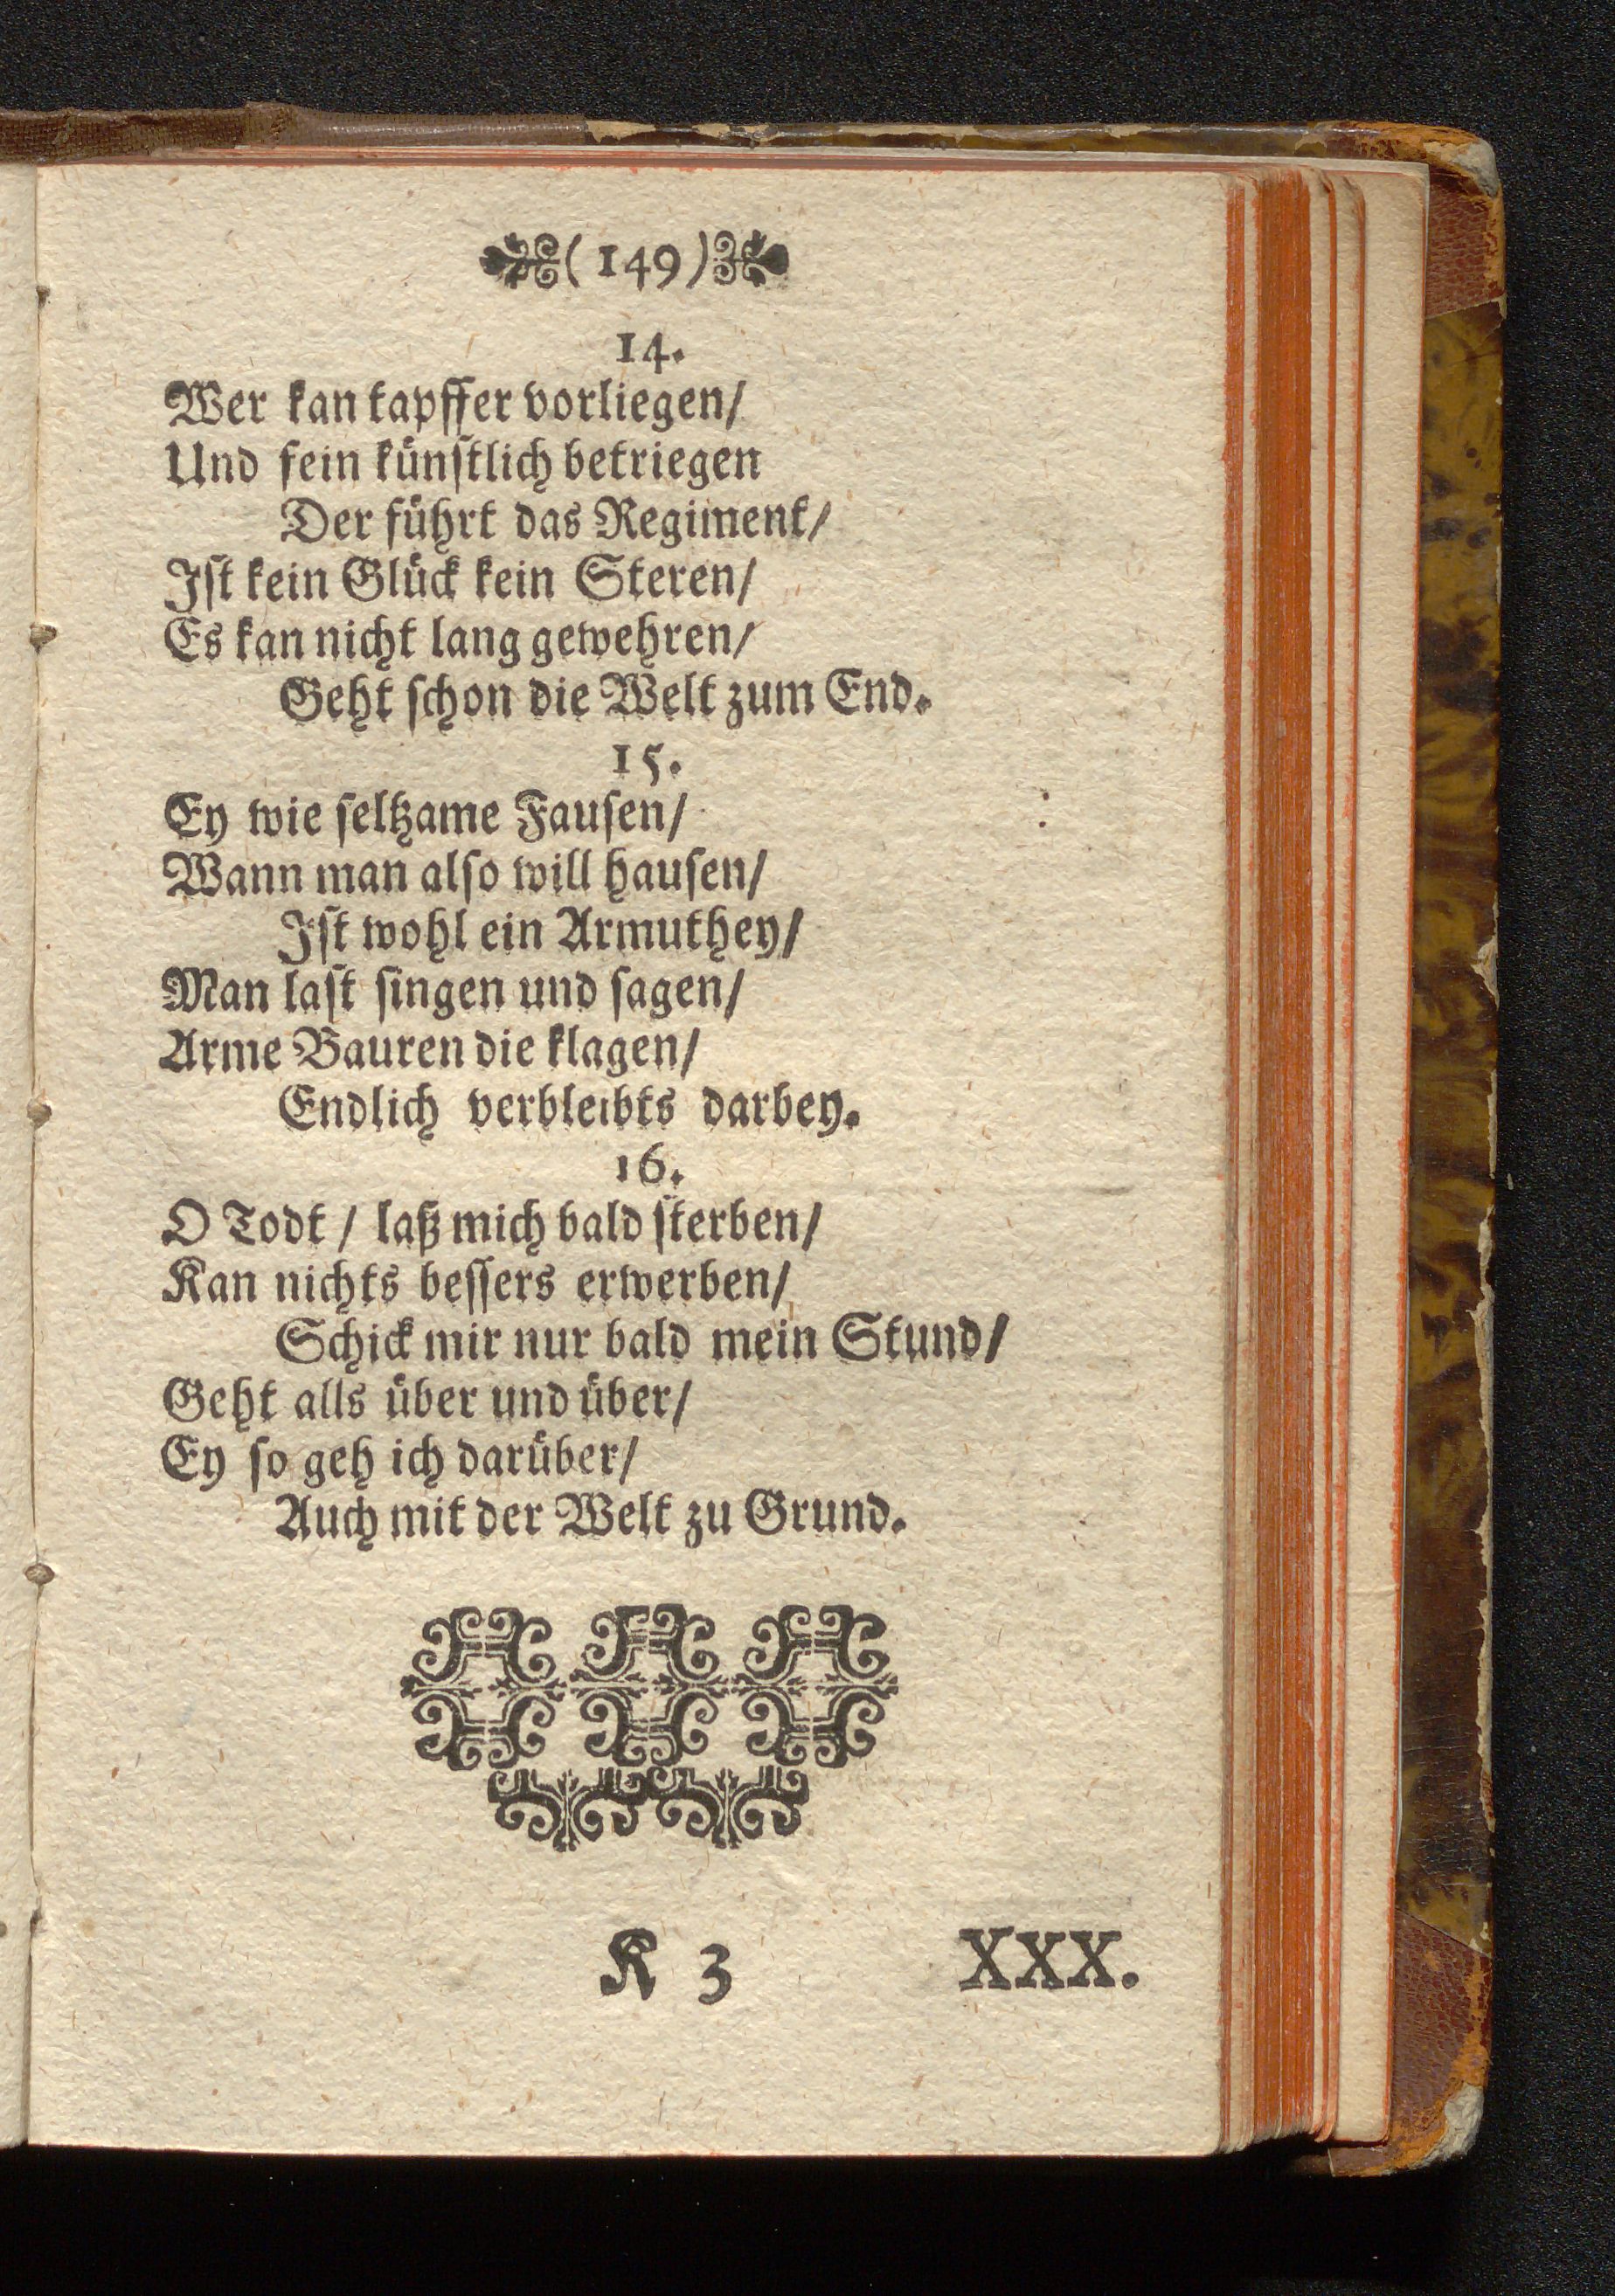 (149)
14.
Wer kan tapffer vorliegen/
Und fein künſtlich betriegen
Der führt das Regiment/
Iſt kein Glück kein Steren/
Es kan nicht lang gewehren/
Geht ſchon die Welt zum End.
15.
Ey wie ſeltzame Fauſen/
Wann man alſo will hauſen/
Iſt wohl ein Armuthey/
Man laſt ſingen und ſagen/
Arme Bauren die klagen/
Endlich verbleibts darbey.
16.
O Todt / laß mich bald ſterben/
Kan nichts beſſers erwerben/
Schick mir nur bald mein Stund/
Geht alls über und über/
Ey ſo geh ich darüber/
Auch mit der Welt zu Grund.
K 3 XXX.